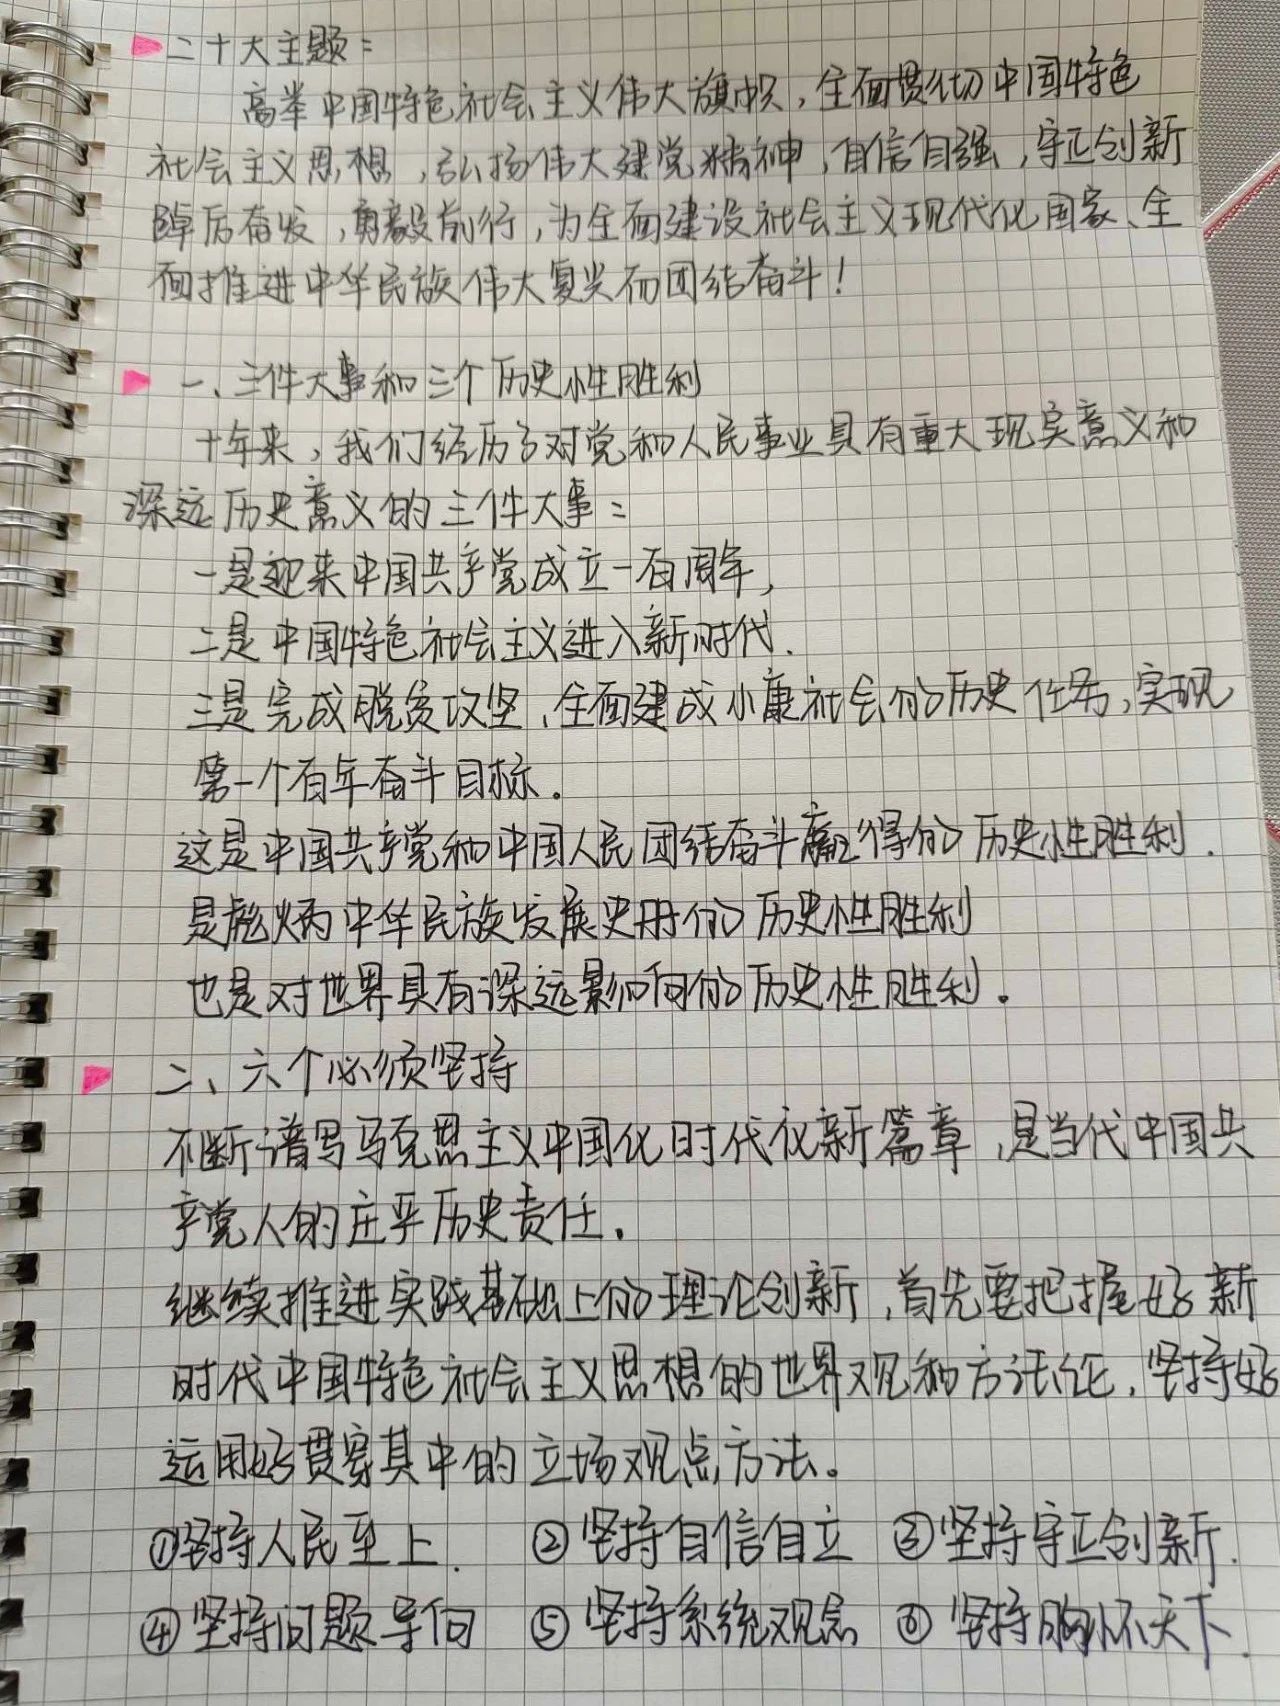 二十大主题:
高举中国特色社会主义伟大旗帜,全面贯彻中国特色
社会主义思想,弘扬伟大建党精神,自信自强,守正创新
踔厉奋发,勇毅前行,为全面建设社会主义现代化国家、全
面推进中华民族伟大复兴而团结奋斗!
一、三件大事和三个历史性胜利
十年来,我们经历了对党和人民事业具有重大现实意义和
深远历史意义的三件大事:
一是迎来中国共产党成立一百周年,
二是中国特色社会主义进入新时代.
三是完成脱贫攻坚、全面建成小康社会的历史任务,实现
第一个百年奋斗目标。
这是中国共产党和中国人民团结奋斗赢得的历史性胜利.
是彪炳中华民族发展史册的历史性胜利
也是对世界具有深远影响的历史性胜利。
二、六个必须坚持
不断谱写马克思主义中国化时代化新篇章,是当代中国共
产党人的庄严历史责任.
继续推进实践基础上的理论创新,首先要把握好新
时代中国特色社会主义思想的世界观和方法论,坚持好
运用好贯穿其中的立场观点方法。
①坚持人民至上. ②坚持自信自立 ③坚持守正创新.
④坚持问题导向 ⑤坚持系统观念 ⑥坚持胸怀天下.